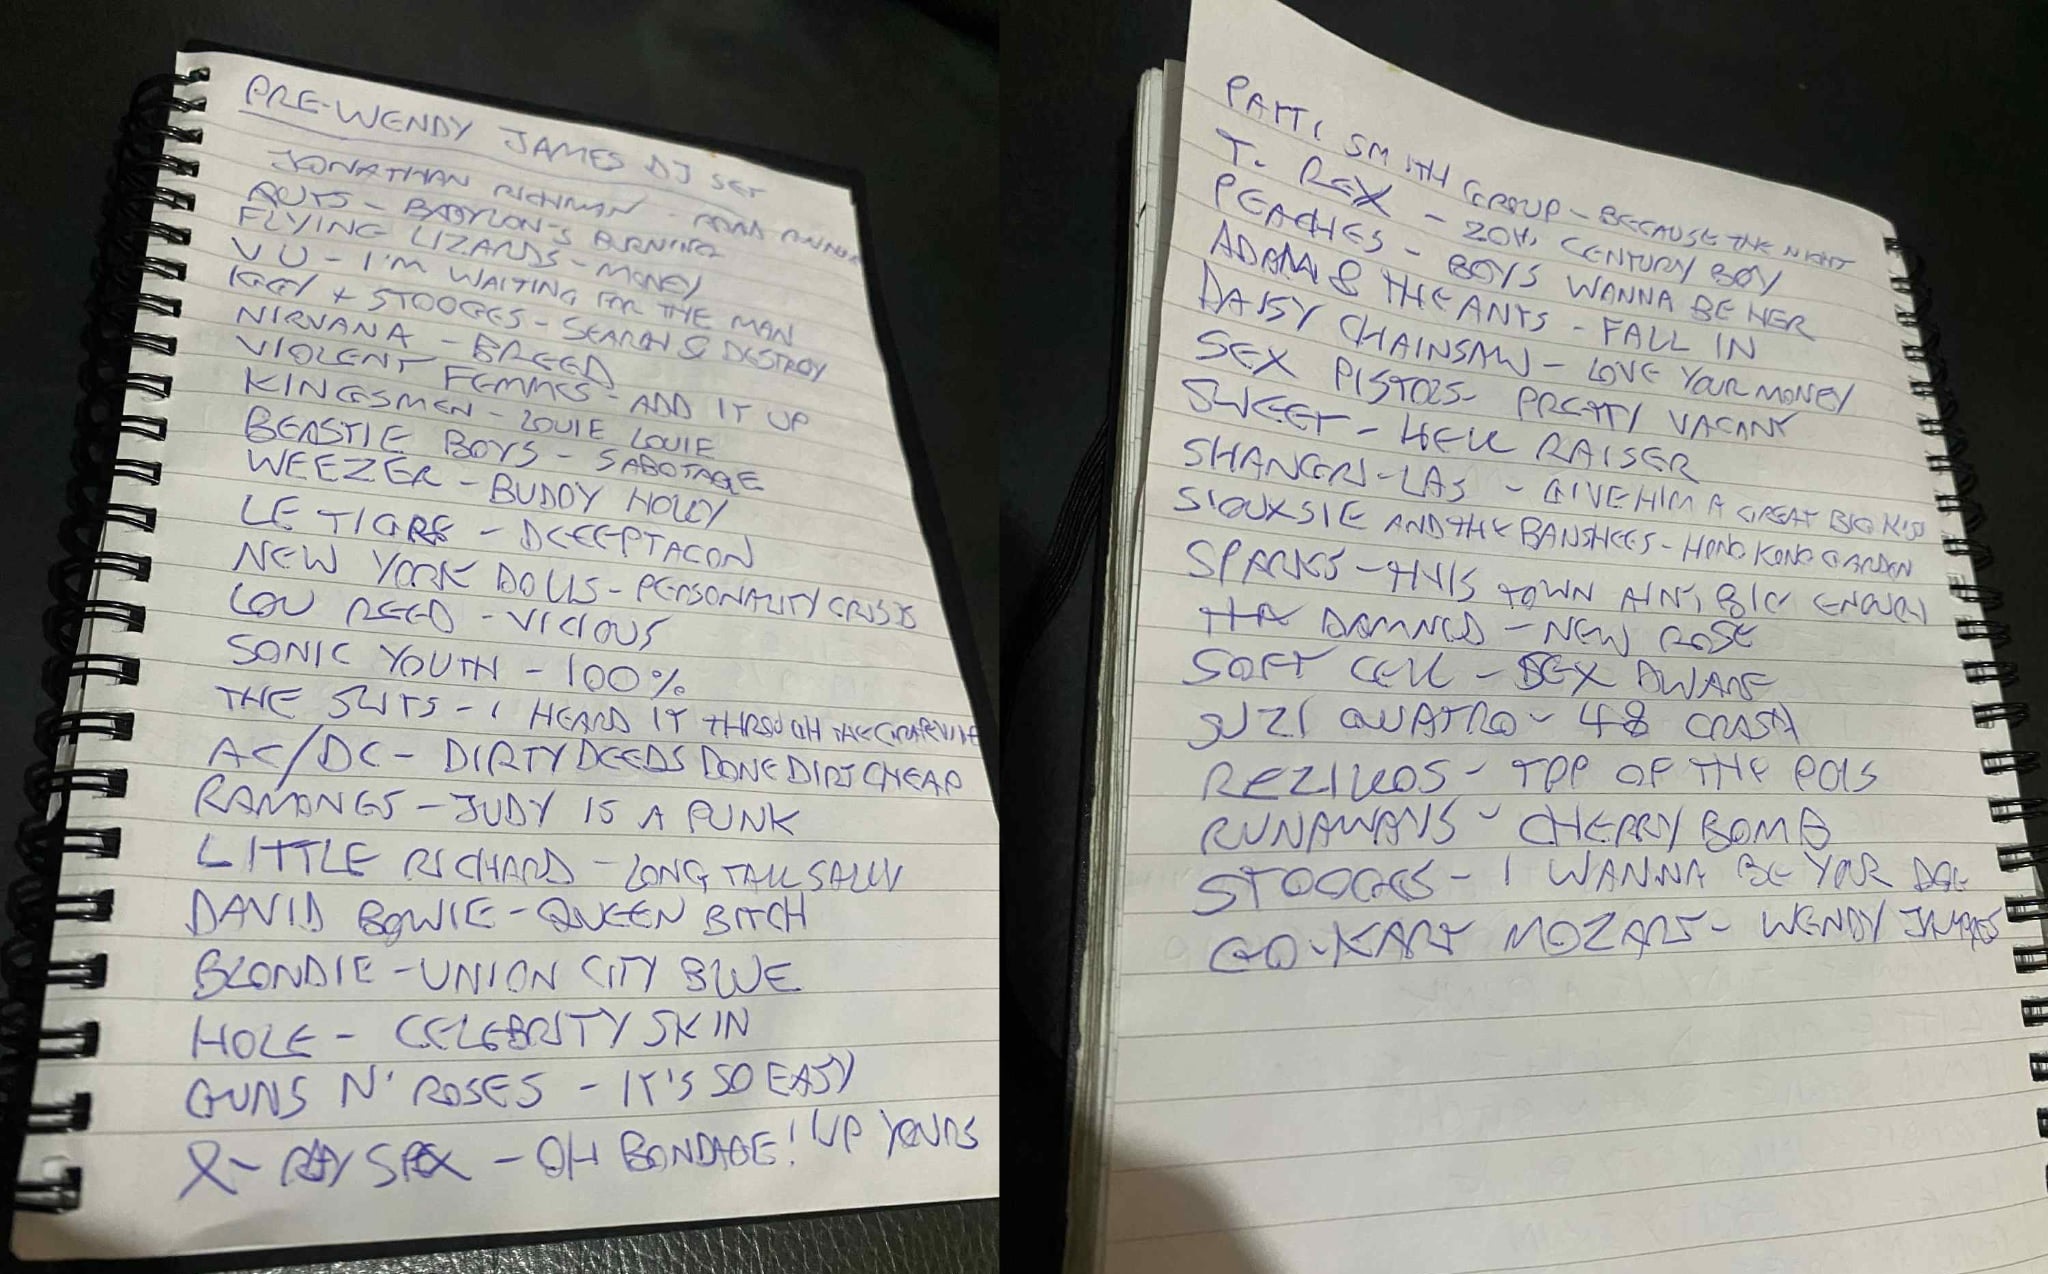 PRE-WENDY JAMES DJ SET
JONATHAN RICHMAN - ROAD RUNNER
RUTS - BABYLON'S BURNING
FLYING LIZARDS - MONEY
VU - I'M WAITING FOR THE MAN
IGGY + STOOGES - SEARCH & DESTROY
NIRVANA - BREED
VIOLENT FEMMES - ADD IT UP
KINGSMEN - LOUIE LOUIE
BEASTIE BOYS - SABOTAGE
WEEZER - BUDDY HOLLY
LE TIGRE - DECEPTACON
NEW YORK DOLLS - PERSONALITY CRISIS
LOU REED - VICIOUS
SONIC YOUTH - 100%
THE SLITS - I HEARD IT THROUGH THE GRAPEVINE
AC/DC - DIRTY DEEDS DONE DIRT CHEAP
RAMONES - JUDY IS A PUNK
LITTLE RICHARD - LONG TALL SALLY
DAVID BOWIE - QUEEN BITCH
BLONDIE - UNION CITY BLUE
HOLE - CELEBRITY SKIN
GUNS N' ROSES - IT'S SO EASY
X-RAY SPEX - OH BONDAGE! UP YOURS
PATTI SMITH GROUP - BECAUSE THE NIGHT
T. REX - 20th CENTURY BOY
PEACHES - BOYS WANNA BE HER
ADAM & THE ANTS - FALL IN
DAISY CHAINSAW - LOVE YOUR MONEY
SEX PISTOLS - PRETTY VACANT
SWEET - HELL RAISER
SHANGRI-LAS - GIVE HIM A GREAT BIG KISS
SIOUXSIE AND THE BANSHEES - HONG KONG GARDEN
SPARKS - THIS TOWN AIN'T BIG ENOUGH
THE DAMNED - NEW ROSE
SOFT CELL - SEX DWARF
SUZI QUATRO - 48 CRASH
REZILLOS - TOP OF THE POPS
RUNAWAYS - CHERRY BOMB
STOOGES - I WANNA BE YOUR DOG
GO-KART MOZART - WENDY JAMES